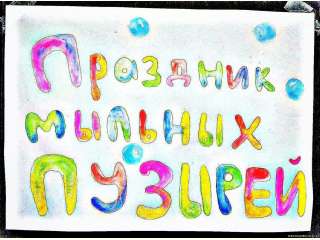 Праздник
мыльных
ПУЗЫРЕЙ